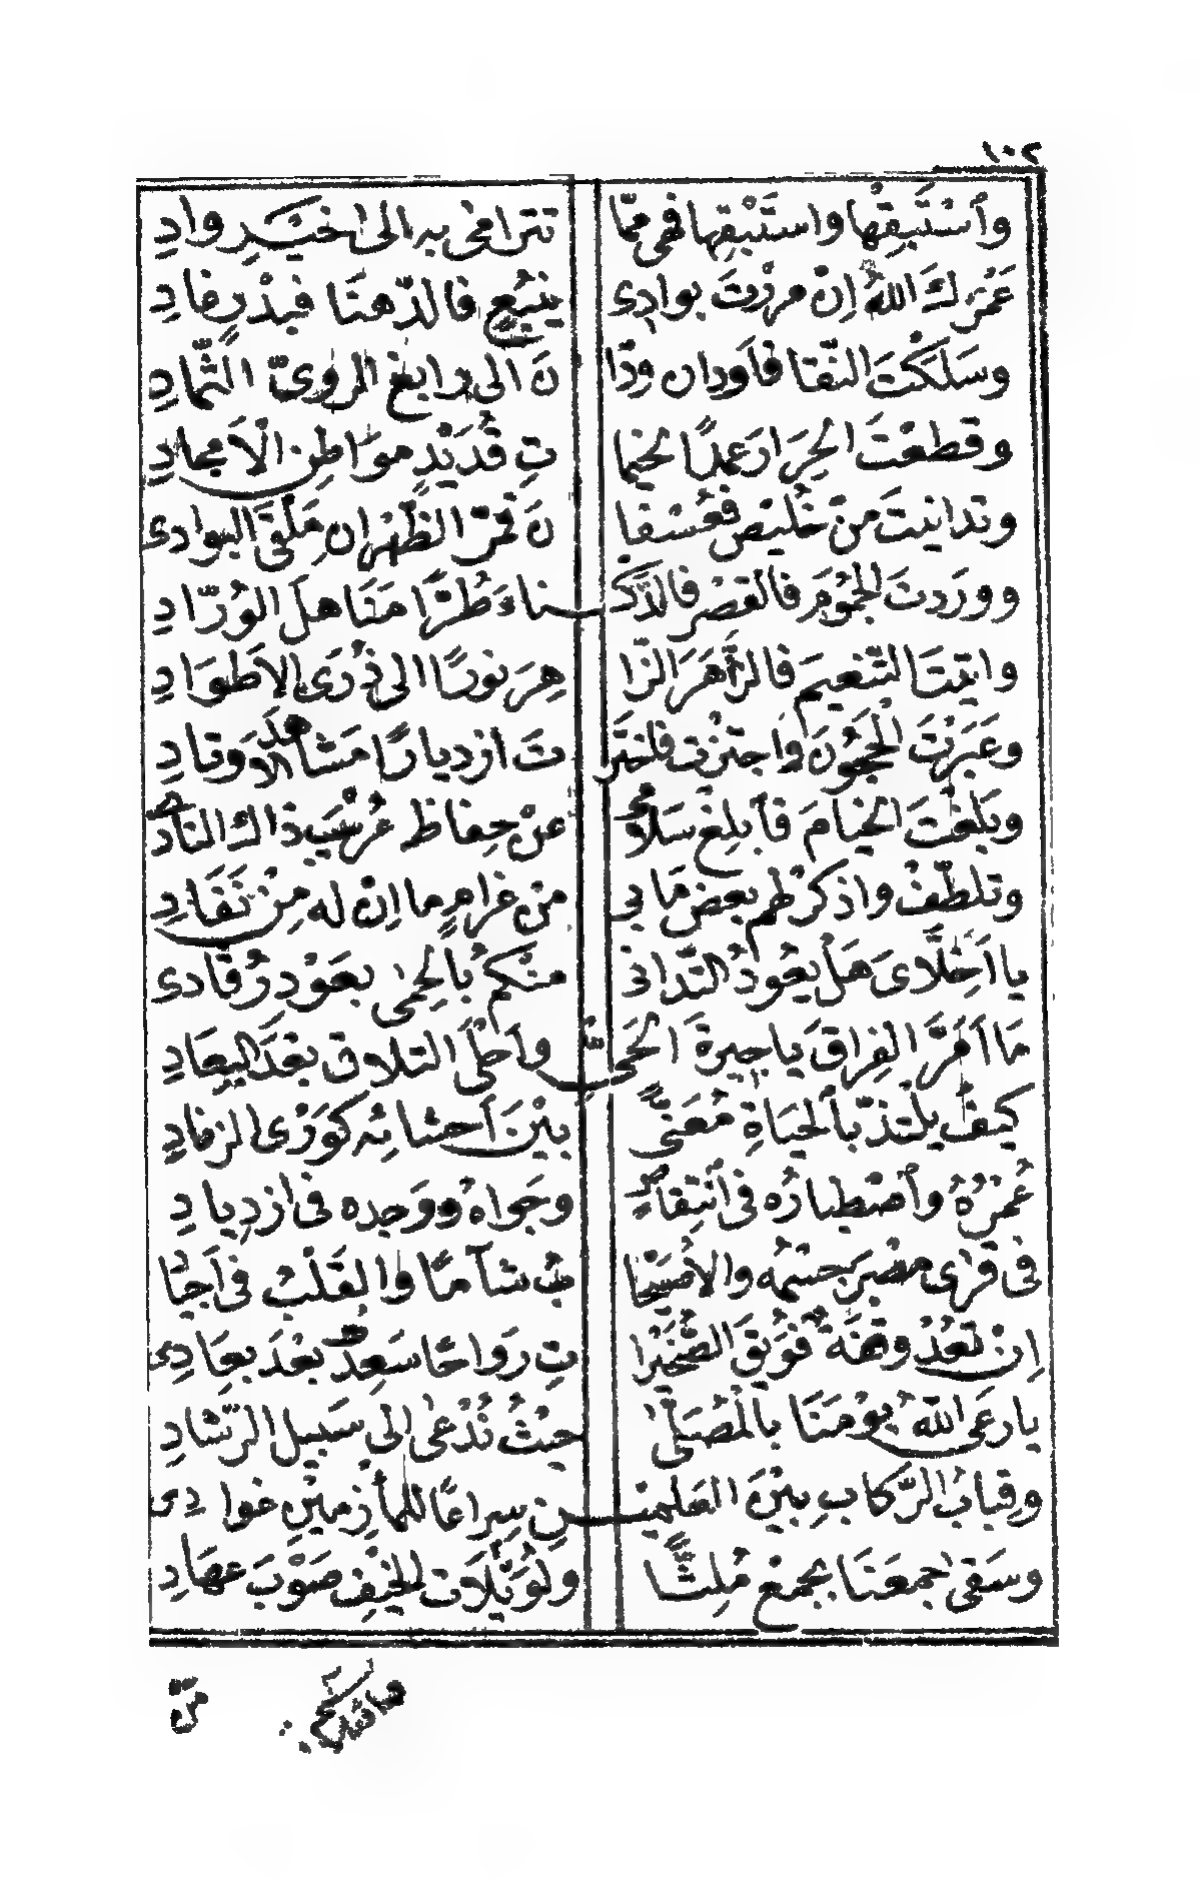 ١٠٢
وأسْتَبِقِها واستَبْقِها فهى ممّا تترامى به الى خَيْرِ وادِ
عَمْرَكَ اللهُ إنْ مررْتَ بوادى ينبُعٍ فالدّهنَا فبدْرٍ غادِ
وسَلَكْتَ النّقا فأودان ودّا نَ الى رابغ الروىّ الثّمادِ
وقطعْتَ الحِرَارَ عمدًا لخيما تِ قُدَيْدٍ موَاطِنِ الأمجادِ
وتدانيتَ منْ خُلَيْصٍ فعُسْفا نَ فمرّ الظّهرانِ مَلْقَى البوادى
ووردتَ الجُمُومَ فالقصرَ فالدّكـ ـناءَ طُرًّا مَنَاهلَ الورّادِ
وأتيتَ التّنعيمَ فالزّاهرَ الزّا هِرَ نورًا الى ذُرَى الأطوَادِ
وعَبَرْتَ الحجُونَ واجتزْتَ فاختَرْ تَ ازديارًا مَشاهدَ الأوتادِ
وبَلَغْتَ الخيامَ فأبلِغْ سَلامى عنْ حِفاظٍ عُرَيْبَ ذاك النادى
وتلطّفْ واذكرْ لهم بعضَ مَا بى منْ غرامٍ ما إنْ له مِنْ نَفَادِ
يا أَخِلّاىَ هَلْ يعُودُ التّدانى منْكمُ بالحِمى بعَوْدِ رُقادى
مَا أَمَرَّ الفِراقَ يا جيرةَ الحىِّ وأَحْلَى التلاقِ بعْدَ البِعَادِ
كيفَ يلتذّ بالحَيَاةِ مُعَنّىً بيْنَ أحشائِهِ كوَرْىِ الزنادِ
عُمْرُهُ وأصْطِبَارُه فى أنتِقاصٍ وجَواهُ ووجده فى ازديادِ
فى قُرَى مصْرَ جسْمُه والأُصَيْحا بُ شآمًا والقَلْبُ فى أجيادِ
إنْ تعُدْ وقفَةٌ فُوَيْقَ الصُّخَيْرا تِ رَواحًا سَعِدْتُ بعْدَ بعادى
يارعَى اللهُ يومَنَا بالمُصَلّى حيْثُ نُدْعَى الى سَبيلِ الرّشادِ
وقِبابُ الرّكابِ بيْنَ العلميـ ـنِ سِراعًا للمأزمَيْنِ غوادى
وسَقَى جمعَنَا بجمعٍ مُلِثًّا ولُوَيْلَاتِ الخيْفِ صَوْبَ عِهَادِ
منْ